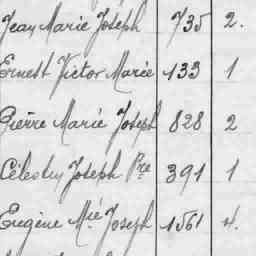 Jean Marie Joseph 735 2.
Ernest Victor Marie 133 1
Pierre Marie Joseph 828 2
Célestin Joseph Pre 391 1
Eugène Mié Joseph 1561 4.